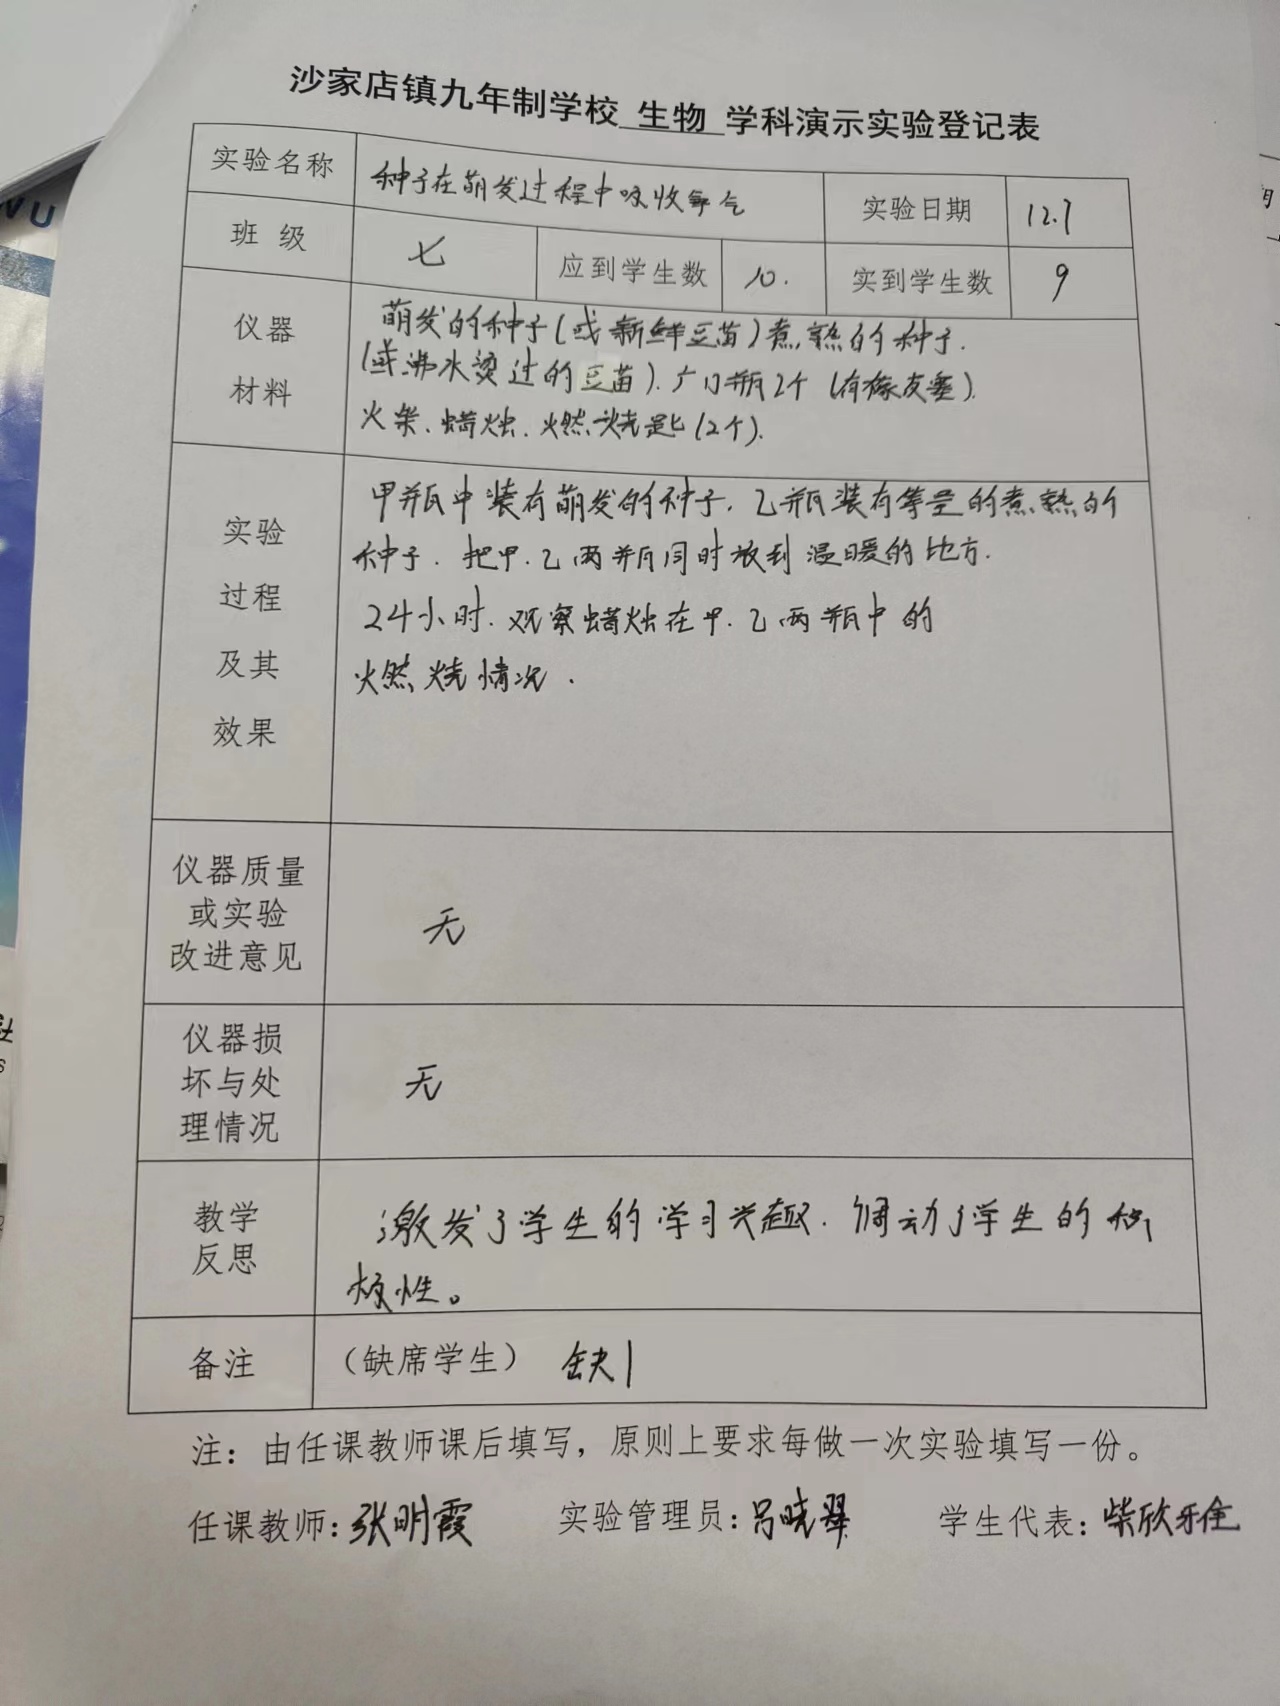 沙家店镇九年制学校 生物 学科演示实验登记表
实验名称 种子在萌发过程中吸收氧气 实验日期 12.7
班 级 七 应到学生数 10. 实到学生数 9
仪器
材料
萌发的种子(或新鲜豆苗)煮熟的种子.
(或沸水烫过的豆苗).广口瓶2个(有橡皮塞).
火柴.蜡烛.燃烧匙(2个).
实验
过程
及其
效果
甲瓶中装有萌发的种子.乙瓶装有等量的煮熟的
种子.把甲.乙两瓶同时放到温暖的地方.
24小时.观察蜡烛在甲.乙两瓶中的
燃烧情况.
仪器质量
或实验
改进意见
无
仪器损
坏与处
理情况
无
教学
反思
激发了学生的学习兴趣.调动了学生的积
极性。
备注 (缺席学生) 缺1
注：由任课教师课后填写，原则上要求每做一次实验填写一份。
任课教师：张明霞 实验管理员：吕晓翠 学生代表：柴欣雅
WU